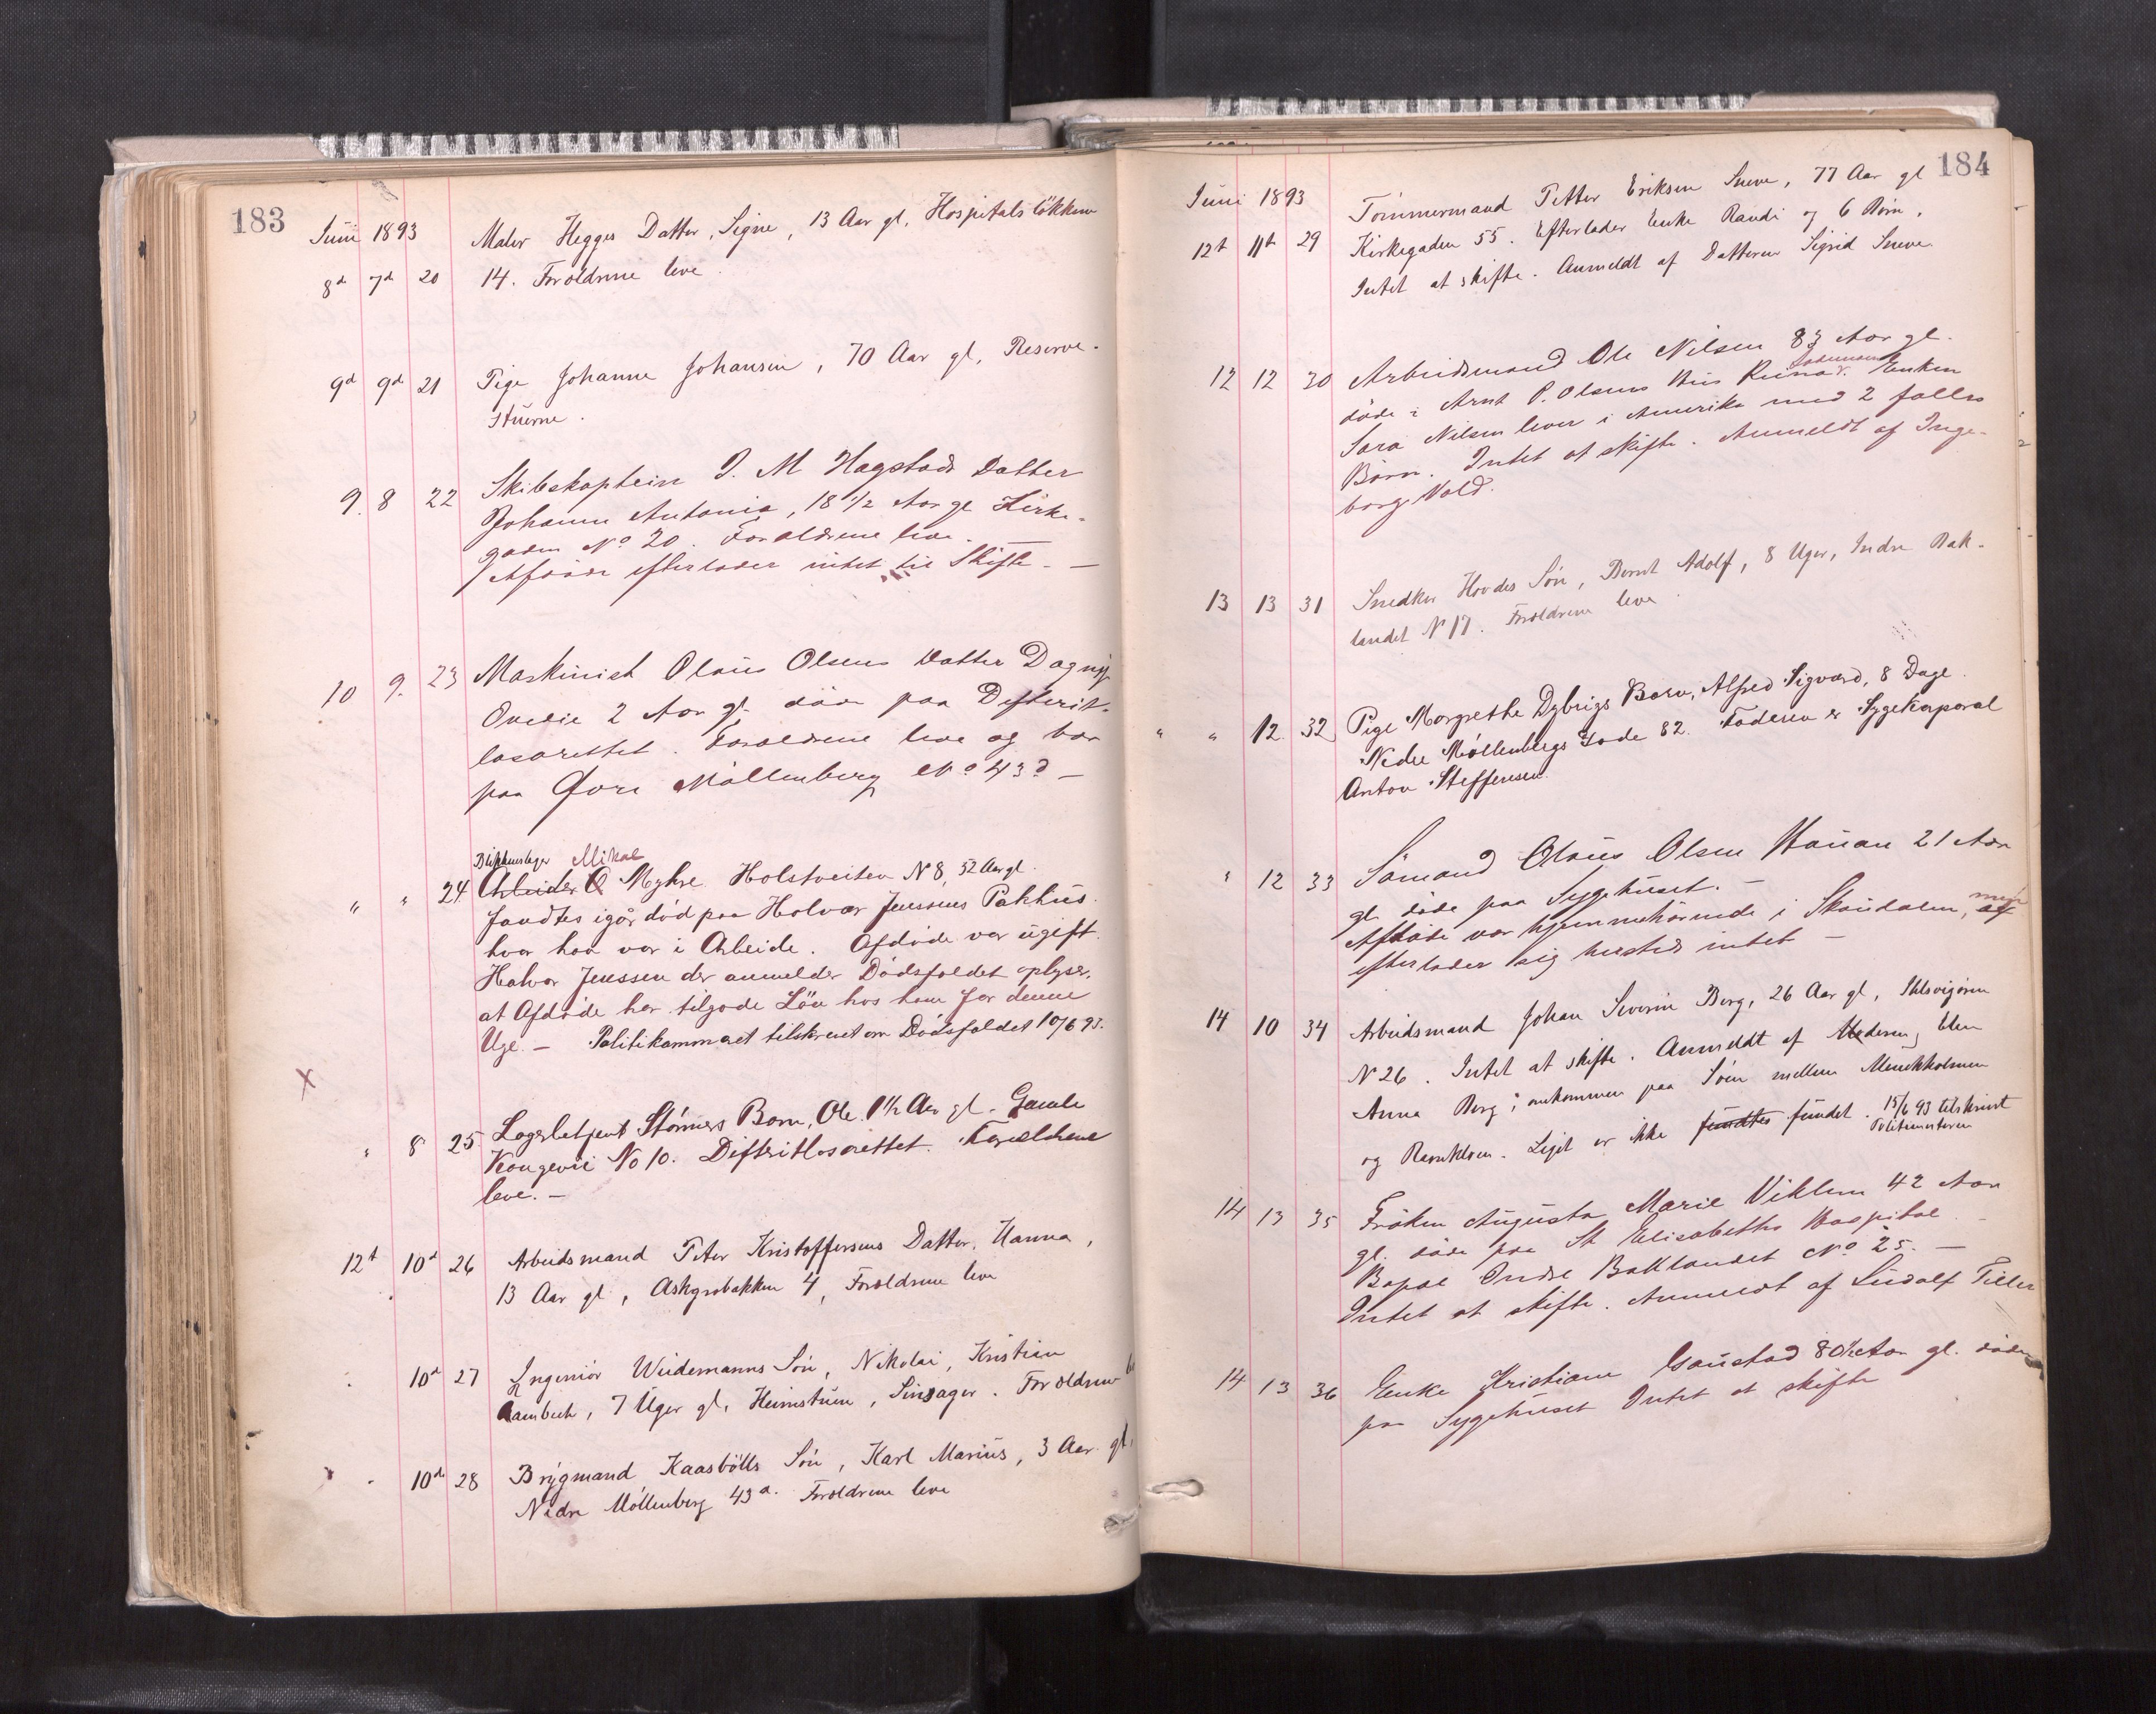 183
Juni 1893
Maler Hegges Datter, Signe, 13 Aar gl. Hospitalsløkken
8d 7d 20 14. Forældrene leve.
9d 9d 21 Pige Johanne Johansen, 70 Aar gl, Reserve-
stuerne.
9. 8 22 Skibskaptein J. M Hagstads Datter
Johanne Antonia, 18 1/2 Aar gl Kirke-
gaden No 20. Forældrene leve. —
Afdøde efterlader intet til Skifte. —
10 9. 23 Maskinist Olaus Olsens Datter Dagny
2 Aar gl. døde paa Difterit-
lasarettet. Forældrene leve og bor
paa Øvre Møllenberg No 43d —
Blikkenslager Mikal
" " 24 Arbeider O Myhre Holstveiten N 8, 52 Aar gl.
fandtes igår død paa Halvor Jenssens Pakhus.
hvor han var i Arbeide. Afdøde var ugift.
Halvor Jenssen der anmelder Dødsfaldet oplyser,
at Afdøde har tilgode Løn hos ham for denne
Uge. — Politikammeret tilskrevet om Dødsfaldet 10/6 93.
X
" 8 25 Lagerbetjent Størmers Barn, Ole 1 1/2 Aar gl. Gamle
Kongevei No 10. Difteritlasarettet. Forældrene
leve. —
12t 10d 26 Arbeidsmand Peter Kristoffersens Datter, Hanna,
13 Aar gl, 4, Forældrene leve
10d 27 Ingeniør Wiidemanns Søn, Nikolai, Kristian
7 Uger gl, Heimstuen, Singsager. Forældrene
10d 28 Brygmand Kaasbølls Søn, Karl Marius, 3 Aar gl,
Nedre Møllenberg 43a. Forældrene leve
184
Juni 1893
Tømmermand Petter Eriksen Sneve, 77 Aar gl
12t 11te 29 Kirkegaden 55. Efterlader Enke Randi og 6 Børn.
Intet at skifte. Anmeldt af Datteren Sigrid Sneve.
12 12 30 Arbeidsmand Ole Nilsen 83 Aar gl.
døde i Arnt P. Olsens Hus Enken
Sara Nilsen lever i Amerika med 2 fælles
Børn. Intet at skifte. Anmeldt af Inge-
borg Vold.
13 13 31 Snedker Hovdes Søn, Bernt Adolf, 8 Uger, Indre Bak-
landet N 17. Forældrene leve
" " 12. 32 Pige Margrethe Dybvigs Barn, Alfred Sigvard, 8 Dage.
Nedre Møllenbergs Gade 82. Faderen er Sygekorporal
Anton Steffensen.
" 12 33 Sømand Olaus Olsen Hauan 21 Aar
gl. døde paa Sygehuset. —
Afdøde var hjemmehørende i Skaudalen, af men
efterlader sig hersteds intet —
14 10 34 Arbeidsmand Johan Severin Berg, 26 Aar gl, Ihlsvigøren
N 26. Intet at skifte. Anmeldt af Moderen, Elen
Anna Berg; omkommen paa Søen mellem Munkholmen
og Ravnkloen. Liget er ikke fundtes fundet. 15/6 93 tilskrevet
Politimesteren
14 13 35 Frøken Augusta Marie Viklem 42 Aar
gl. døde paa St Elisabeths Hospital.
Bopæl Indre Baklandet No 25. —
Intet at skifte. Anmeldt af Ludolf Tiller
14 13 36 Enke Kristiane Gaustad 80 Aar gl. døde
paa Sygehuset Intet at skifte